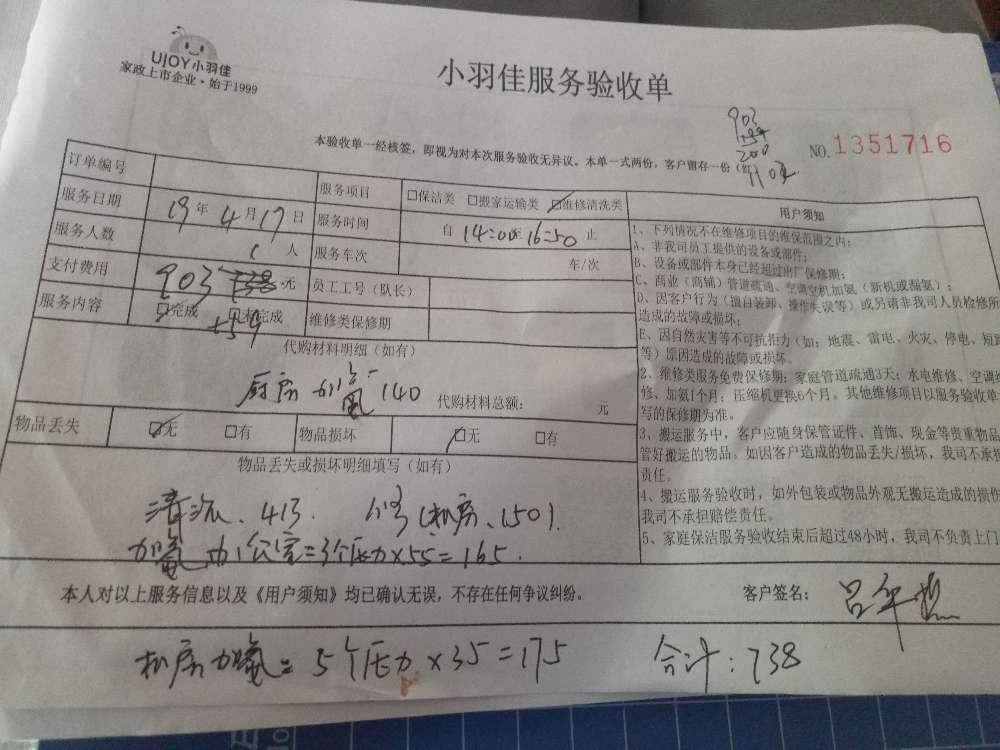 UJOY小羽佳
家政上市企业·始于1999
小羽佳服务验收单
903
200
NO.1351716
本验收单一经核签，即视为对本次服务验收无异议。本单一式两份，客户留存一份（红
订单编号
服务项目 □保洁类 □搬家运输类 ☑维修清洗类
用户须知
服务日期 19年4月17日
服务时间 自 14:00至16:50 止
服务人数 1人
服务车次 车/次
支付费用 903 738 元
员工工号（队长）
服务内容 ☑完成 □未完成
+59
维修类保修期
代购材料明细（如有）
厨房 加氟 140 代购材料总额： 元
物品丢失 ☑无 □有 物品损坏 ☑无 □有
物品丢失或损坏明细填写（如有）
清洗、413. 维修（机房、150）.
加氟 办公室=3个压力×55=165.
1、下列情况不在维修项目的维保范围之内：
A、非我司员工提供的设备或部件；
B、设备或部件本身已经超过出厂保修期；
C、商业（商铺）管道疏通、空调空机加氨（新机或漏氨）；
D、因客户行为（擅自装卸、操作失误等）或另请非我司人员检修所
造成的故障或损坏；
E、因自然灾害等不可抗拒力（如：地震、雷电、火灾、停电、短路
等）原因造成的故障或损坏。
2、维修类服务免费保修期：家庭管道疏通3天；水电维修、空调维
修、加氨1个月；压缩机更换6个月。其他维修项目以服务验收单
写的保修期为准。
3、搬运服务中，客户应随身保管证件、首饰、现金等贵重物品
管好搬运的物品。如因客户造成的物品丢失/损坏，我司不承担
责任。
4、搬运服务验收时，如外包装或物品外观无搬运造成的损伤
我司不承担赔偿责任。
5、家庭保洁服务验收结束后超过48小时，我司不负责上门
本人对以上服务信息以及《用户须知》均已确认无误，不存在任何争议纠纷。
客户签名：
机房加氟=5个压力×35=175 合计：738